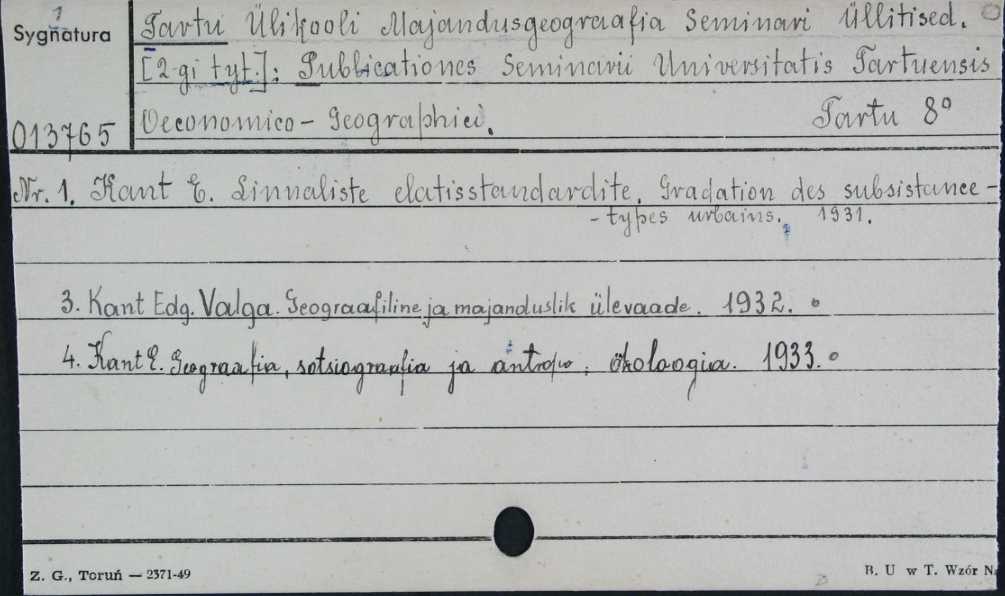 Sygnatura
013765
Tartu Ülikooli Majandusgeograafia Seminari Üllitised.
[2-gi tyt.]: Publicationes Seminarii Universitatis Tartuensis
Oeconomico - Geographici. Tartu 8°
Nr. 1. Kant E. Linnaliste elatisstandardite. Gradation des subsistance -
- types urbains. 1931.
3. Kant Edg. Valga. Geograafiline ja majanduslik ülevaade. 1932.
4. Kant E. Geograafia, sotsiograafia ja antropo, ökoloogia. 1933.
Z. G., Toruń — 2371-49
B. U w T. Wzór N